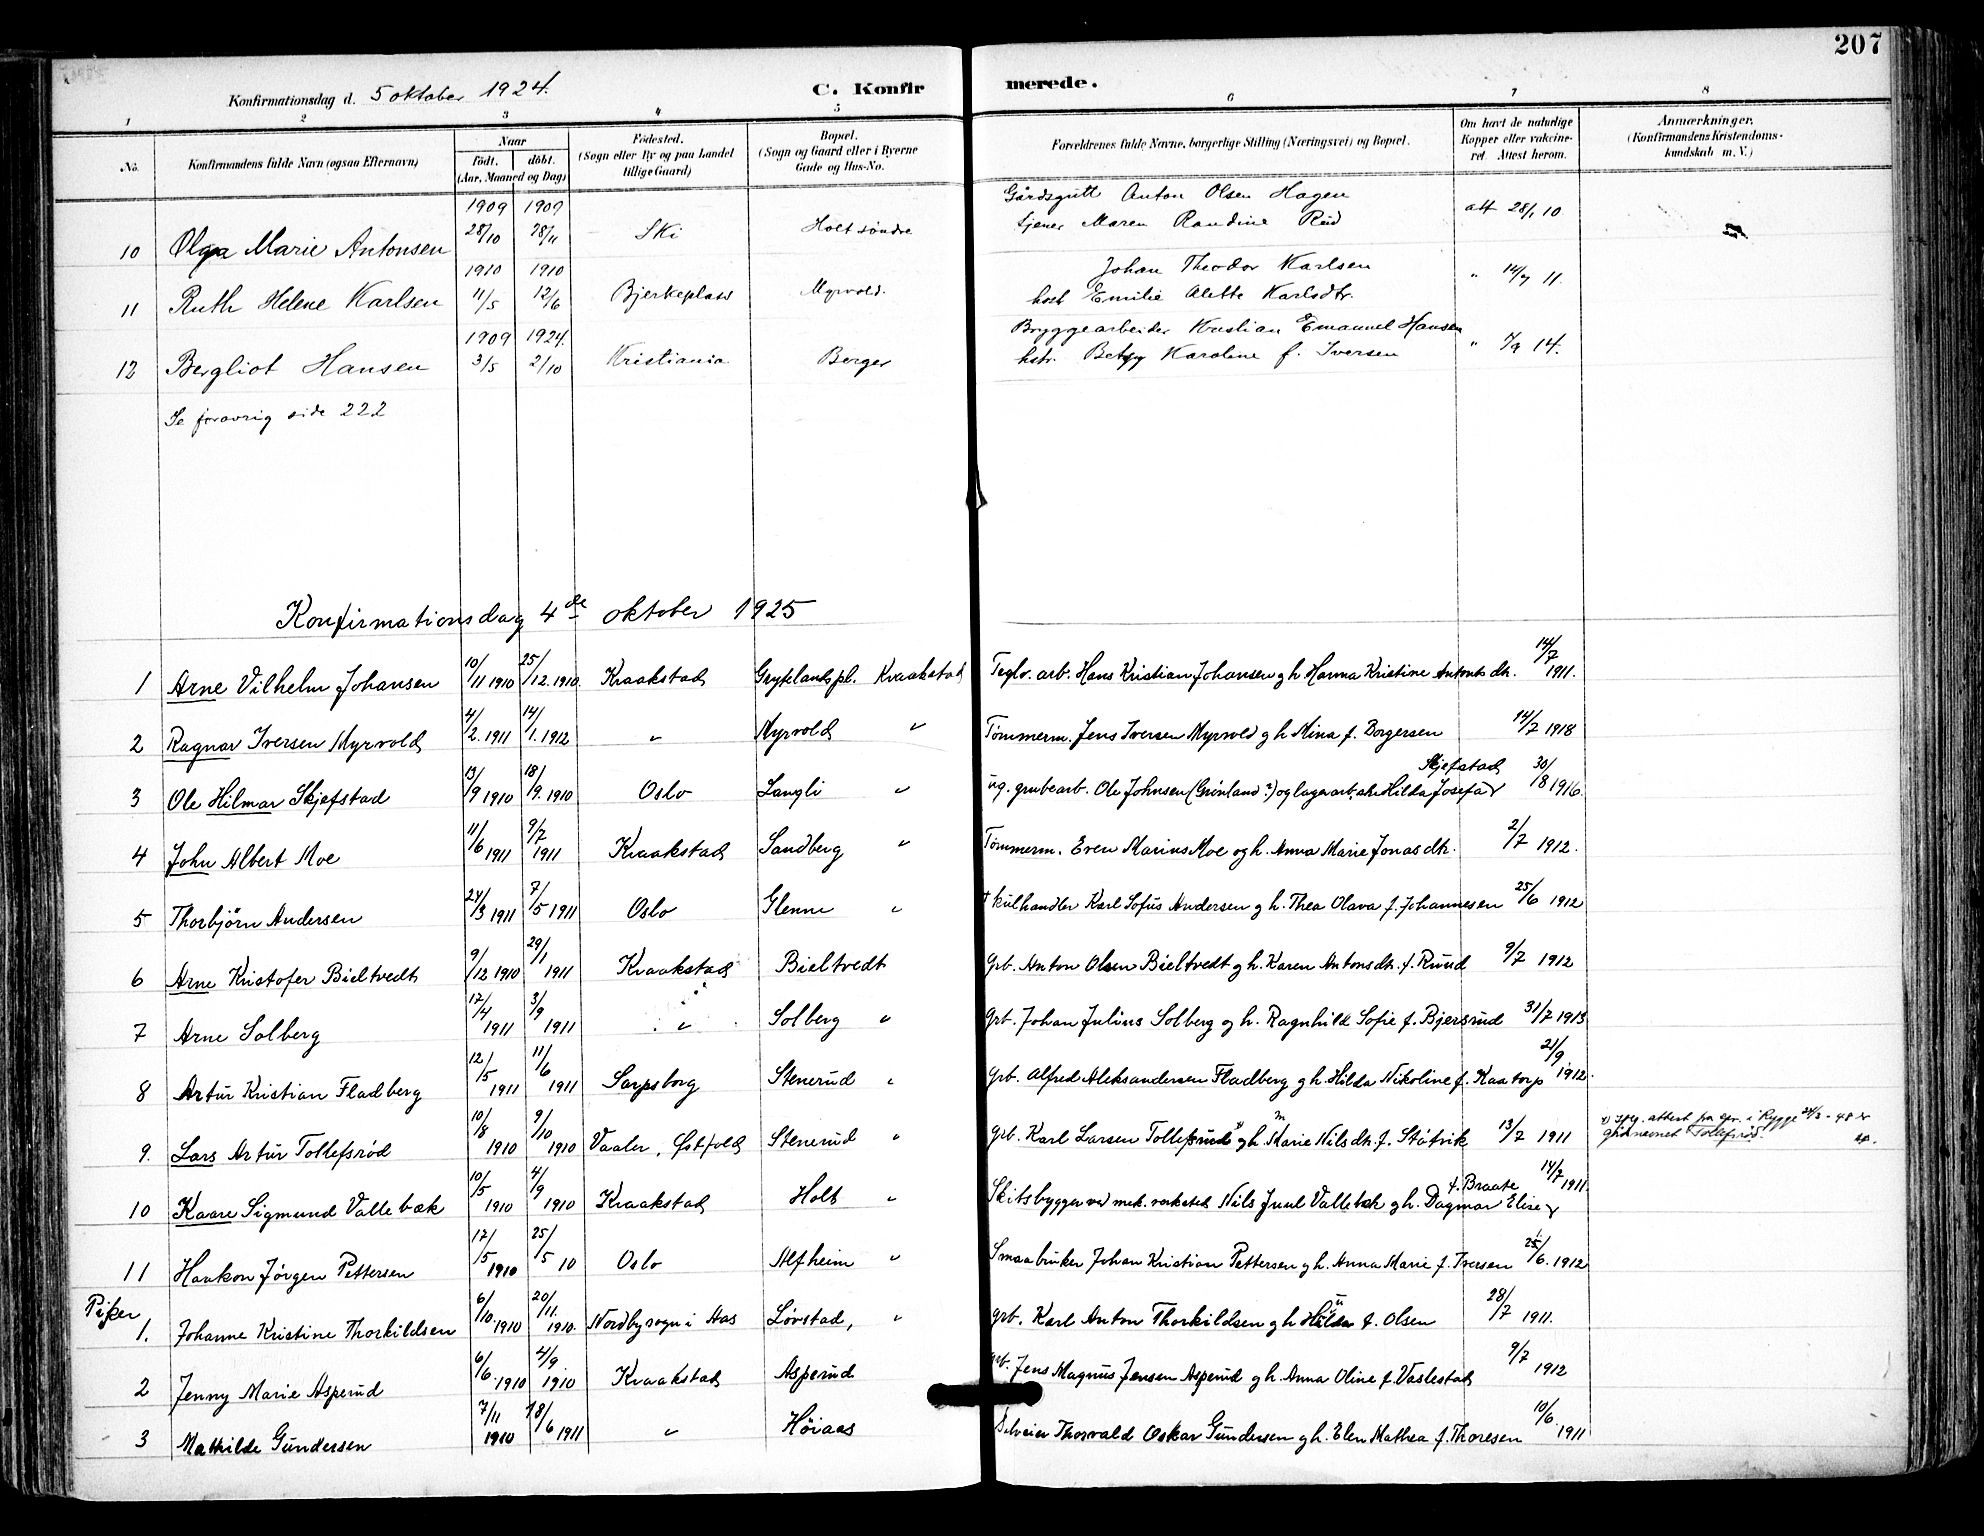 207
Konfirmationsdag d. 5 oktober 1924.
C. Konfirmerede.
1 2 3 4 5 6 7 8
No. Konfirmandens fulde Navn (ogsaa Efternavn) Naar født. døbt. (Aar, Maaned og Dag) Fødested. (Sogn eller By og paa Landet tillige Gaard) Bopæl. (Sogn og Gaard eller i Byerne Gade og Hus-No. Forældrenes fulde Navne, borgerlige Stilling (Næringsvei) og Bopæl. Om havt de naturlige Kopper eller vakcineret. Attest herom. Anmærkninger. (Konfirmandens Kristendomskundskab m. V.)
10 Olga Marie Antonsen 1909 28/10 1909 28/11 Ski Holt søndre Gårdsgutt Anton Olsen Hagen tjener Maren Randine Rud att 28/1 10
11 Ruth Helene Karlsen 1910 11/5 1910 12/6 Bjerkeplass Myrvold. Johan Theodor Karlsen host Emilie Alette Karlsdtr. " 14/7 11.
12 Bergliot Hansen 1909 3/5 1924. 2/10 Kristiania Berger Bryggearbeider Kristian Emanuel Hansen hstr. Betzy Karoline f. Iversen " 1/9 14.
Se forøvrig side 222
Konfirmationsdag 4de oktober 1925
1 Arne Vilhelm Johansen 10/11 1910 25/12. 1910. Kraakstad Grytelandspl. Kraakstad Teglv. arb. Hans Kristian Johansen g h Hanna Kristine Antonsdtr. 14/7 1911.
2 Ragnar Iversen Myrvold 4/2. 1911 14/1. 1912 " Myrvold " Tømmerm. Jens Iversen Myrvold g h Mina f. Borgersen 14/7 1918
3 Ole Hilmar Skjefstad 13/9 1910 18/9. 1910 Oslo Langli " ug. grubearb. Ole Johnsen (Grønland?) og lagerarb.ske Hilda Josefa Skjefstad 30/8 1916
4 John Albert Moe 11/6 1911 9/7 1911 Kraakstad Sandberg " Tømmerm. Even Marius Moe og h. Anna Marie Jonasdtr. 2/7 1912.
5 Thorbjörn Andersen 24/3 1911 7/5 1911 Oslo Glenne " † kulhandler Karl Sofus Andersen g h. Thea Olava f. Johannesen 25/6 1912
6 Arne Kristofer Bieltvedt 9/12 1910 29/1 1911 Kraakstad Bieltvedt grb. Anton Olsen Bieltvedt g h. Karen Antonsdtr. f. Ruud 9/7 1912
7 Arne Solberg 17/4 1911 3/9 1911 " Solberg " grb. Johan Julius Solberg og h. Ragnhild Sofie f. Bjersrud 31/7 1913
8 Artur Kristian Fladberg 12/5 1911 11/6 1911 Sarpsborg Stenerud " grb. Alfred Aleksandersen Fladberg g h Hilda Nikoline f. Kaatorp 21/9 1912
9. Lars Artur Tollefsrød 10/8 1910 9/10 1910 Vaaler, Østfold Stenerud " grb. Karl Larsen Tollefsrud g h. Marie Nilsdtr. f. Støtvik 13/7 1911 x) Iflg. attest fra spr. i Rygge 24/2-48 er gårdnavnet Tollefsrød.
10 Kaare Sigmund Vallebæk 10/5 1910 4/9 1910 Kraakstad Holt " Skibsbygger ved mek. verksted Nils Juul Vallebæk g h. Dagmar Elise f. Braate 14/7 1911.
11 Haakon Jørgen Pettersen 12/5 1910 25/5 10 Oslo Alfheim " Smaabruker Johan Kristian Pettersen g h. Anna Marie f. Iversen 25/6. 1912
Piker
1. Johanne Kristine Thorkildsen 6/10. 1910 20/11. 1910. Nordby sogn i Aas Løvstad, " grb. Karl Anton Thorkildsen g h Hilda f. Olsen 28/7 1911.
2 Jenny Marie Asperud 6/6. 1910 4/9. 1910 Kraakstad Asperud grb. Jens Magnus Jensen Asperud g h. Anna Oline f. Vaslestad 9/7 1912
3 Mathilde Gundersen 7/11 1910 18/6 1911 " Høiaas Selveier Thorvald Oskar Gundersen g h. Elen Mathea f. Thoresen 10/6. 1911